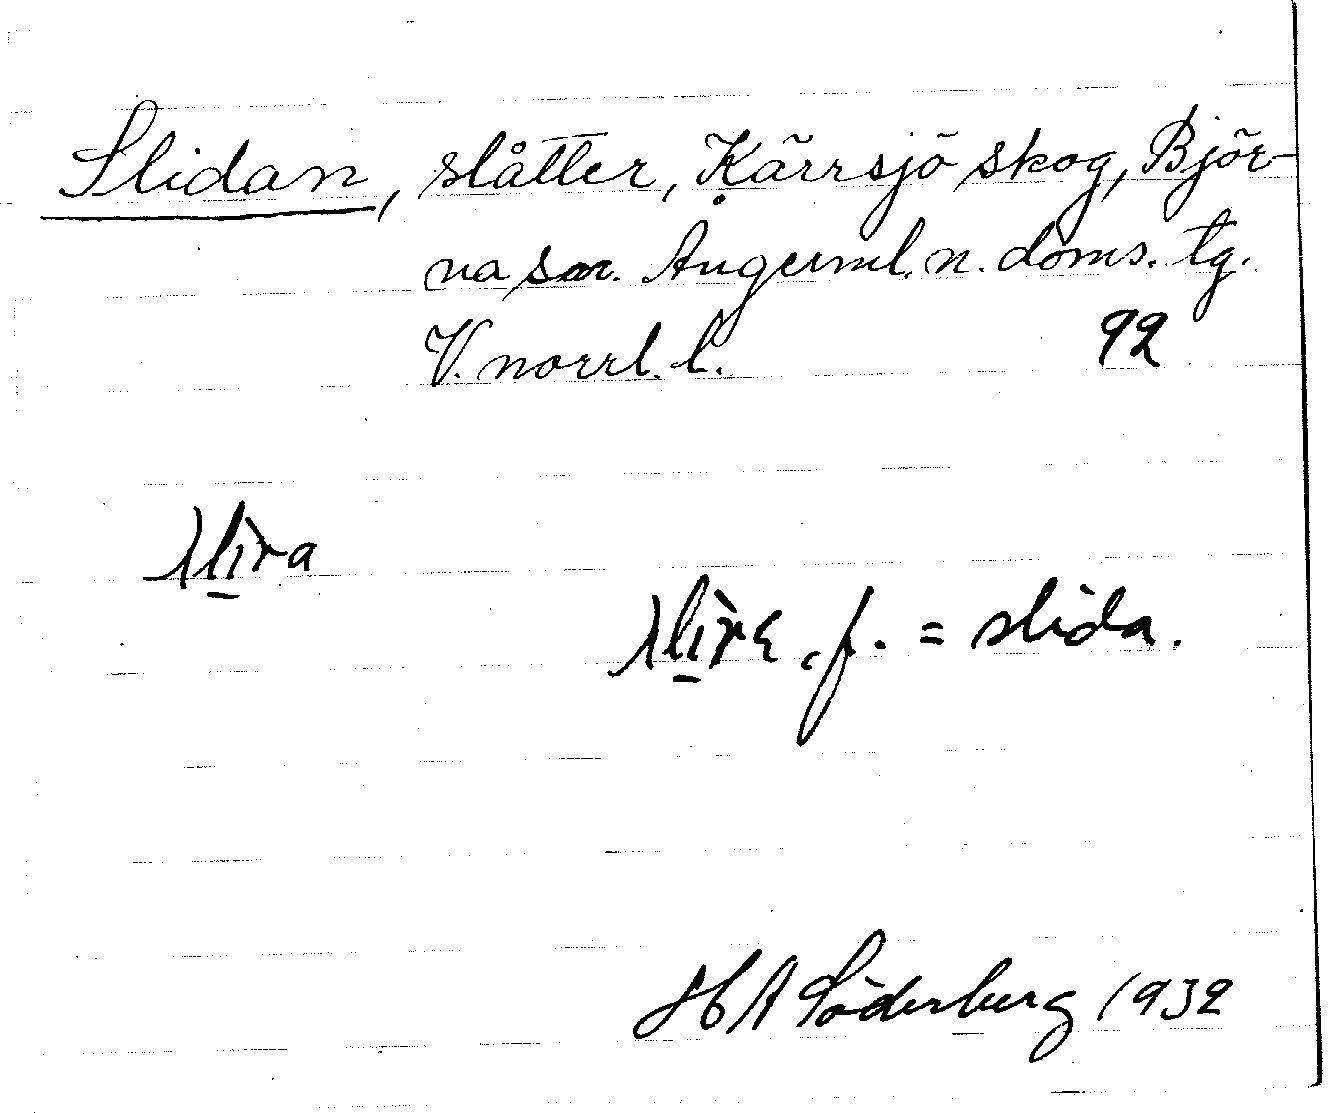 Slidan, slåtter, Kärrsjö skog, Björ-
na sn. Ångerml. n. doms. tg.
V. norrl. l. 92
slìra
slìrɛ, f. = slida.
HA Söderberg 1932